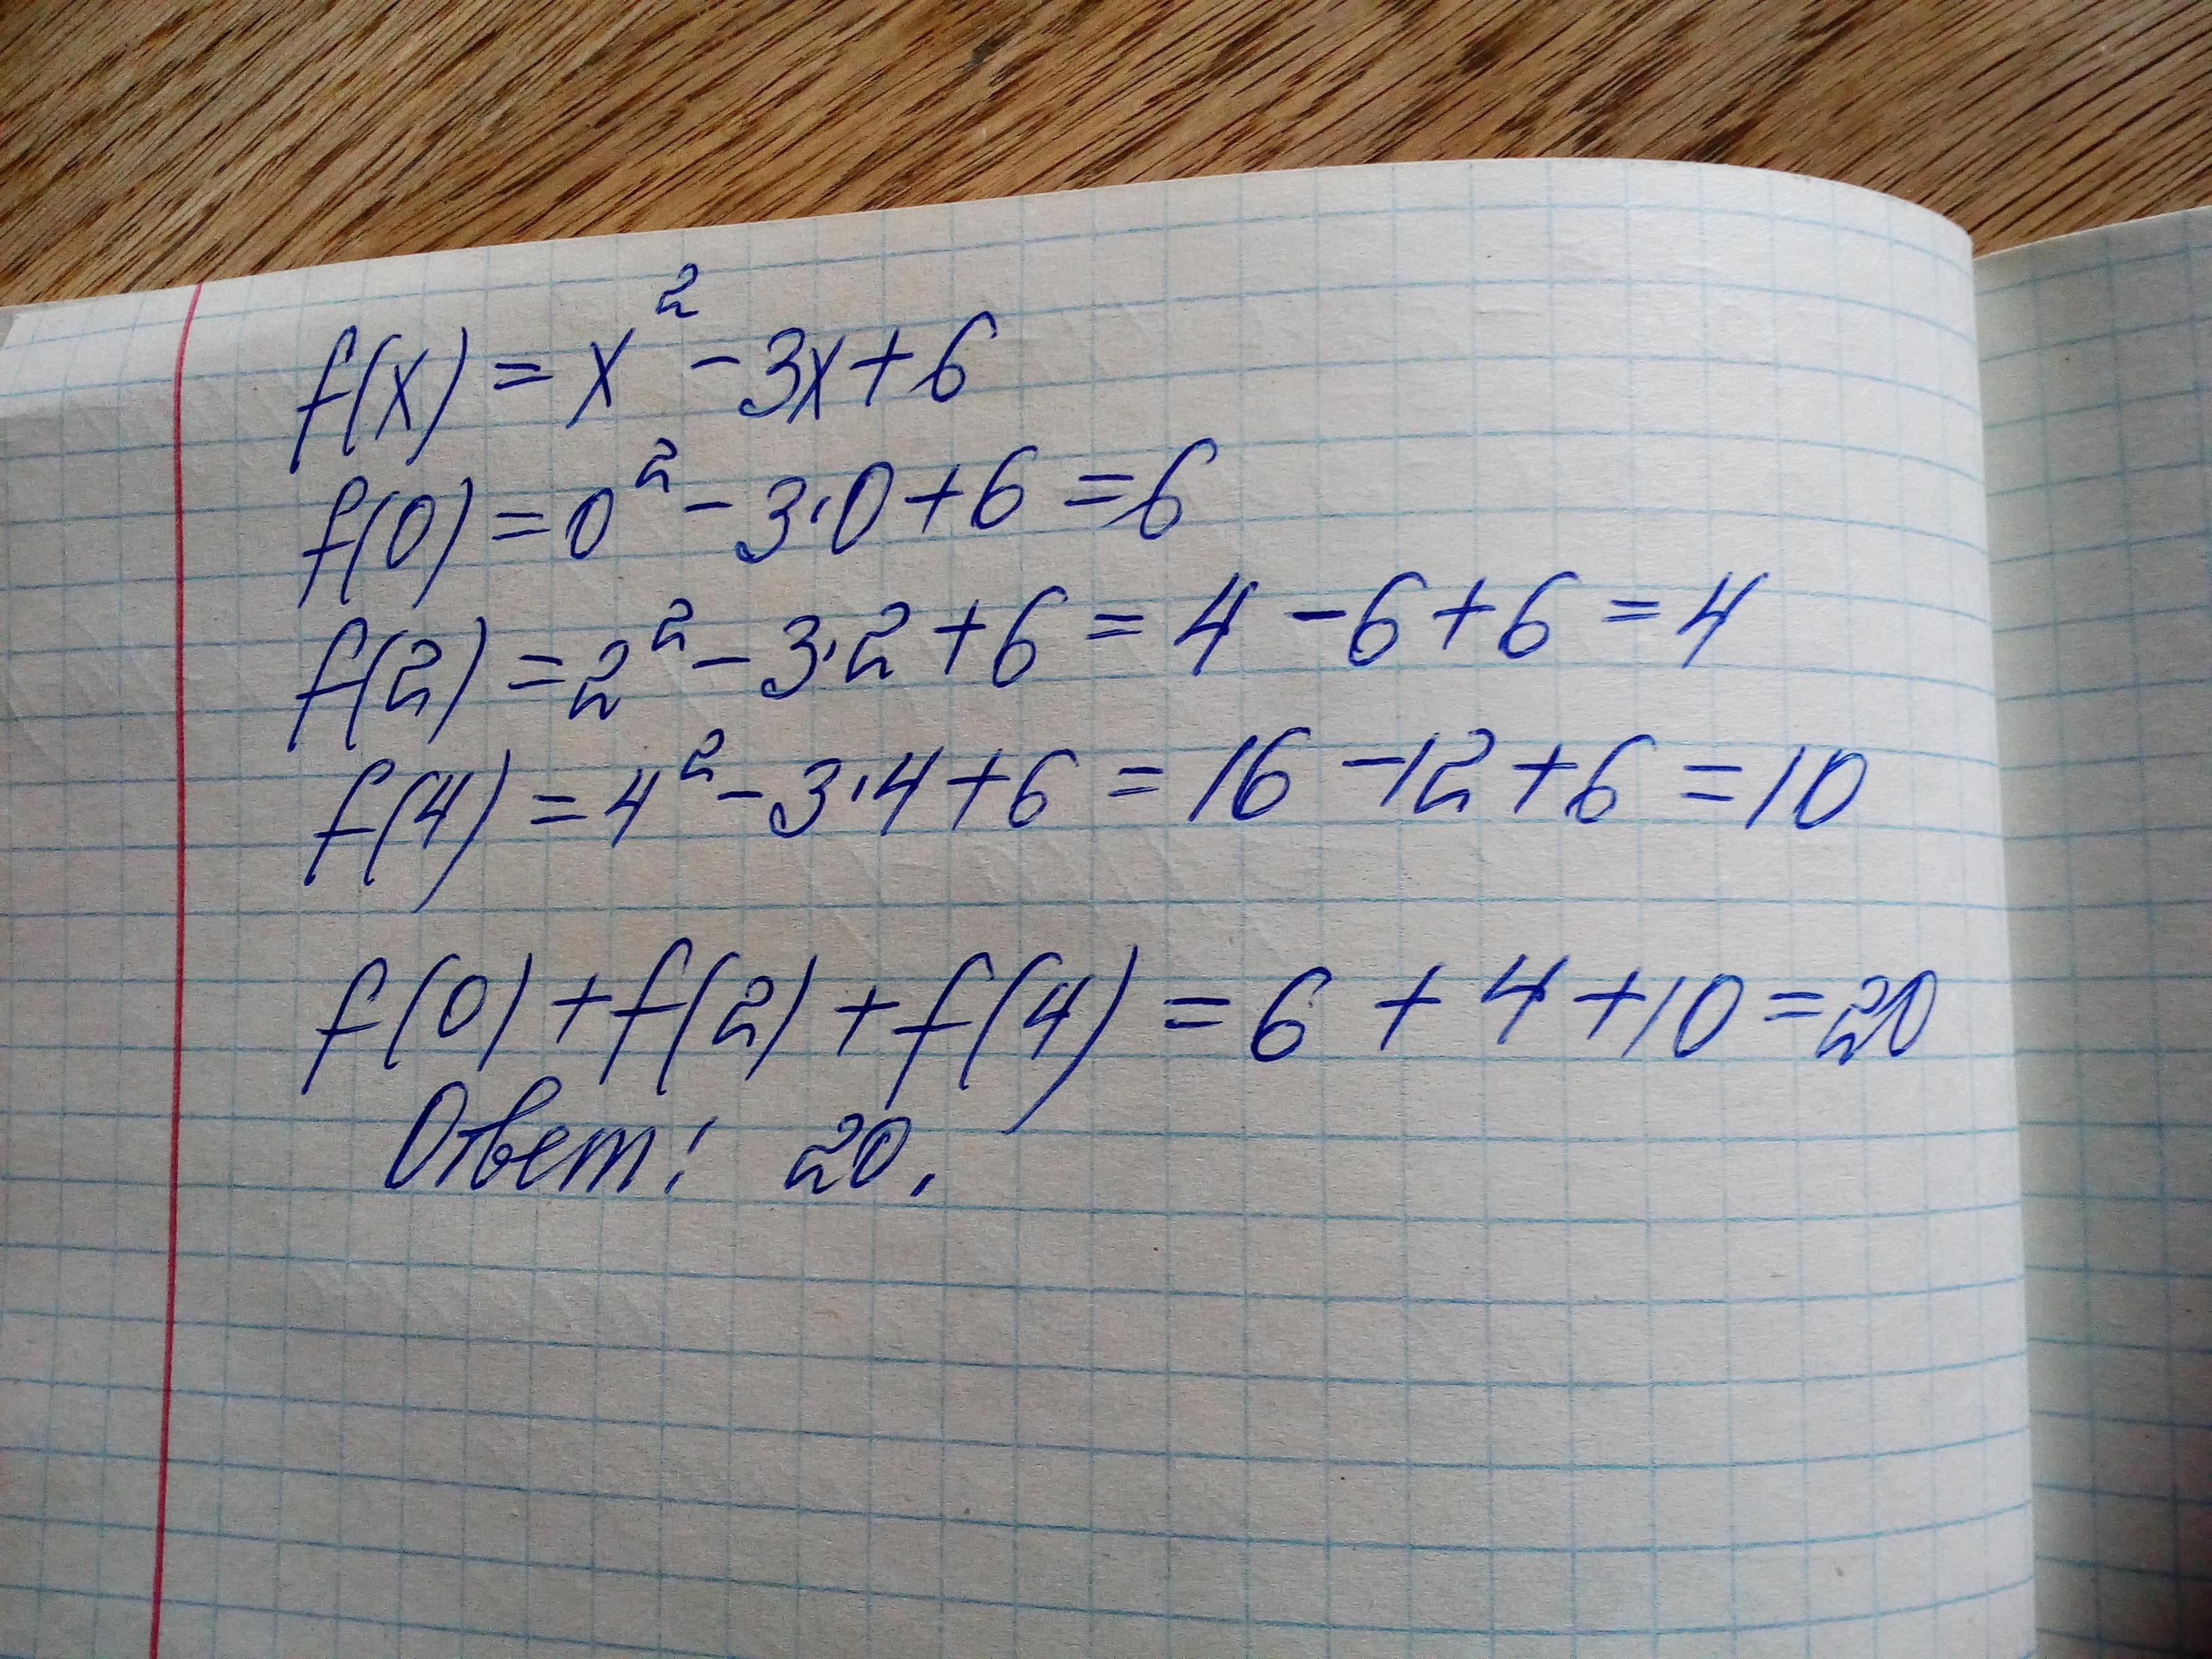 f(x) = x² - 3x + 6
f(0) = 0² - 3·0 + 6 = 6
f(2) = 2² - 3·2 + 6 = 4 - 6 + 6 = 4
f(4) = 4² - 3·4 + 6 = 16 - 12 + 6 = 10
f(0) + f(2) + f(4) = 6 + 4 + 10 = 20
Ответ: 20.